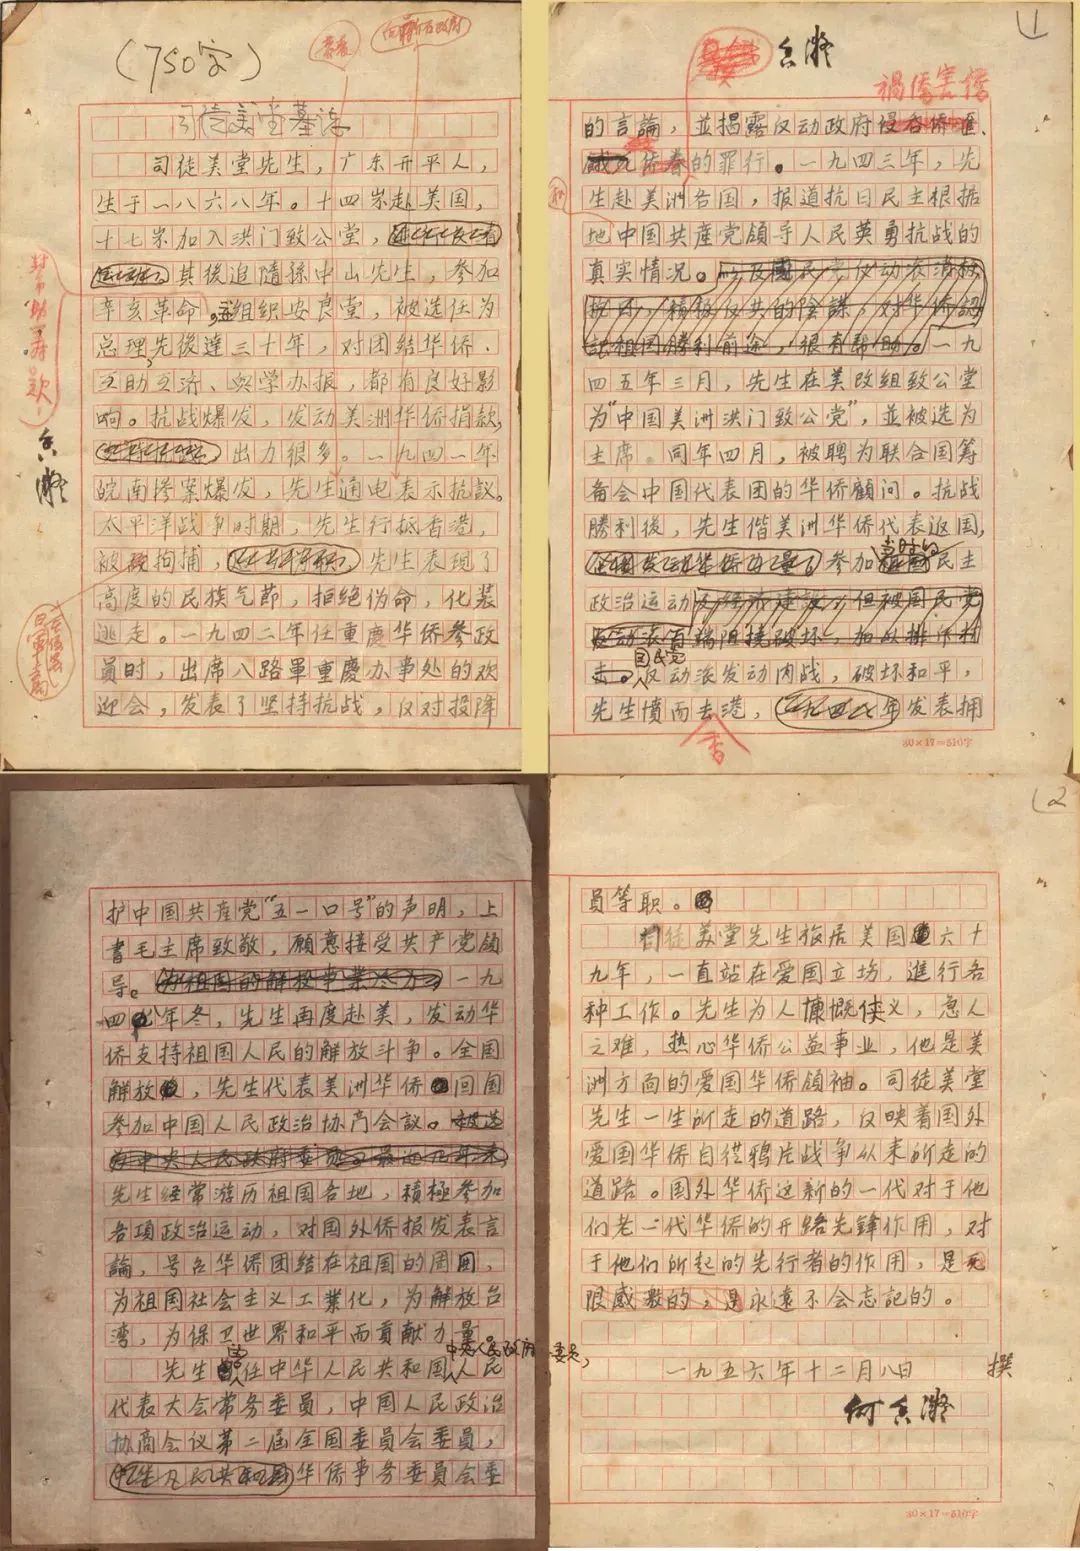 （750字）
司徒美堂墓誌
司徒美堂先生，广东开平人，
生于一八六八年。十四岁赴美国，
十七岁加入洪门致公堂，
其後追隨孫中山先生，参加
辛亥革命，组织安良堂，被选任为
总理，先後達三十年，对团结华侨、
互助互济、興学办报，都有良好影
响。抗战爆发，发动美洲华侨捐款，
出力很多。一九四一年
皖南惨案爆发，先生通电表示抗議。
太平洋战争时期，先生行抵香港，
被敌拘捕，先生表现了
高度的民族气節，拒绝伪命，化装
逃走。一九四二年任重慶华侨参政
員时，出席八路軍重慶办事处的欢
迎会，发表了坚持抗战，反对投降
香凝
1
香凝
禍僑害僑
的言論，並揭露反动政府侵吞侨匯、
侨眷的罪行。一九四三年，先
生赴美洲各国，报道抗日民主根据
地中国共産党領导人民英勇抗战的
真实情况。以及國民党反动派消极
抗日，積极反共的陰謀，对华侨認
識祖国勝利前途，很有帮助。一九
四五年三月，先生在美改组致公堂
为“中国美洲洪门致公党”，並被选为
主席。同年四月，被聘为联合国筹
备会中国代表团的华侨顧问。抗战
勝利後，先生偕美洲华侨代表返国，
参加當时的民主
政治运动及经济建設，但被国民党
反动派百端阻撓破坏，加以排斥打
击。国民党反动派发动内战，破坏和平，
先生憤而去港，一九四八年发表拥
香
30×17=510字
护中国共産党“五一口号”的声明，上
書毛主席致敬，願意接受共产党领
导。为祖国的解放事業尽力。一九
四九年冬，先生再度赴美，发动华
侨支持祖国人民的解放斗争。全国
解放，先生代表美洲华侨回国
参加中国人民政治协商会議。被选
为中央人民政府委員。最近几年来，
先生经常游历祖国各地，積極参加
各項政治运动，对国外侨报发表言
論，号召华侨团结在祖国的周围，
为祖国社会主义工業化，为解放台
湾，为保卫世界和平而貢献力量。
先生當任中华人民共和国中央人民政府委员，人民
代表大会常务委員，中国人民政治
协商会议第二届全国委員会委員，
华侨事务委員会委
2
員等职。
司徒美堂先生旅居美国六十
九年，一直站在爱国立坊，進行各
种工作。先生为人慷慨侠义，急人
之难，热心华侨公益事业，他是美
洲方面的爱国华侨領袖。司徒美堂
先生一生所走的道路，反映着国外
爱国华侨自従鸦片战争以来所走的
道路。国外华侨这新的一代对于他
们老一代华侨的开路先鋒作用，对
于他们所起的先行者的作用，是无
限感激的，是永遠不会忘記的。
一九五六年十二月八日 撰
何香凝
30×17=510字